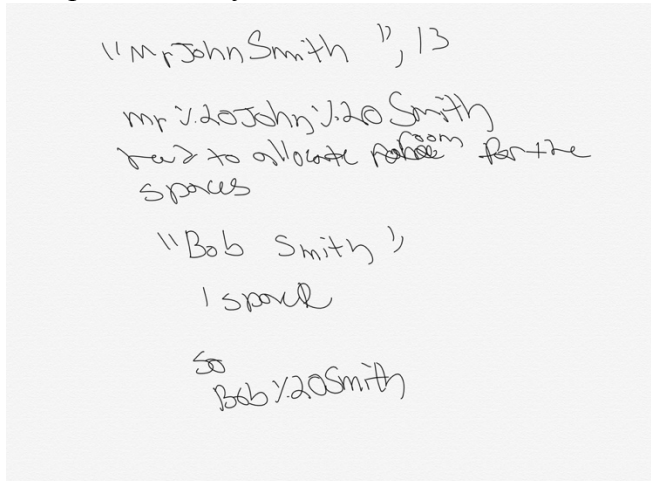 "MrJohnSmith ", 13
mr%20John%20Smith
need to allocate room for the
spaces
"Bob Smith"
1 space
so
Bob%20Smith